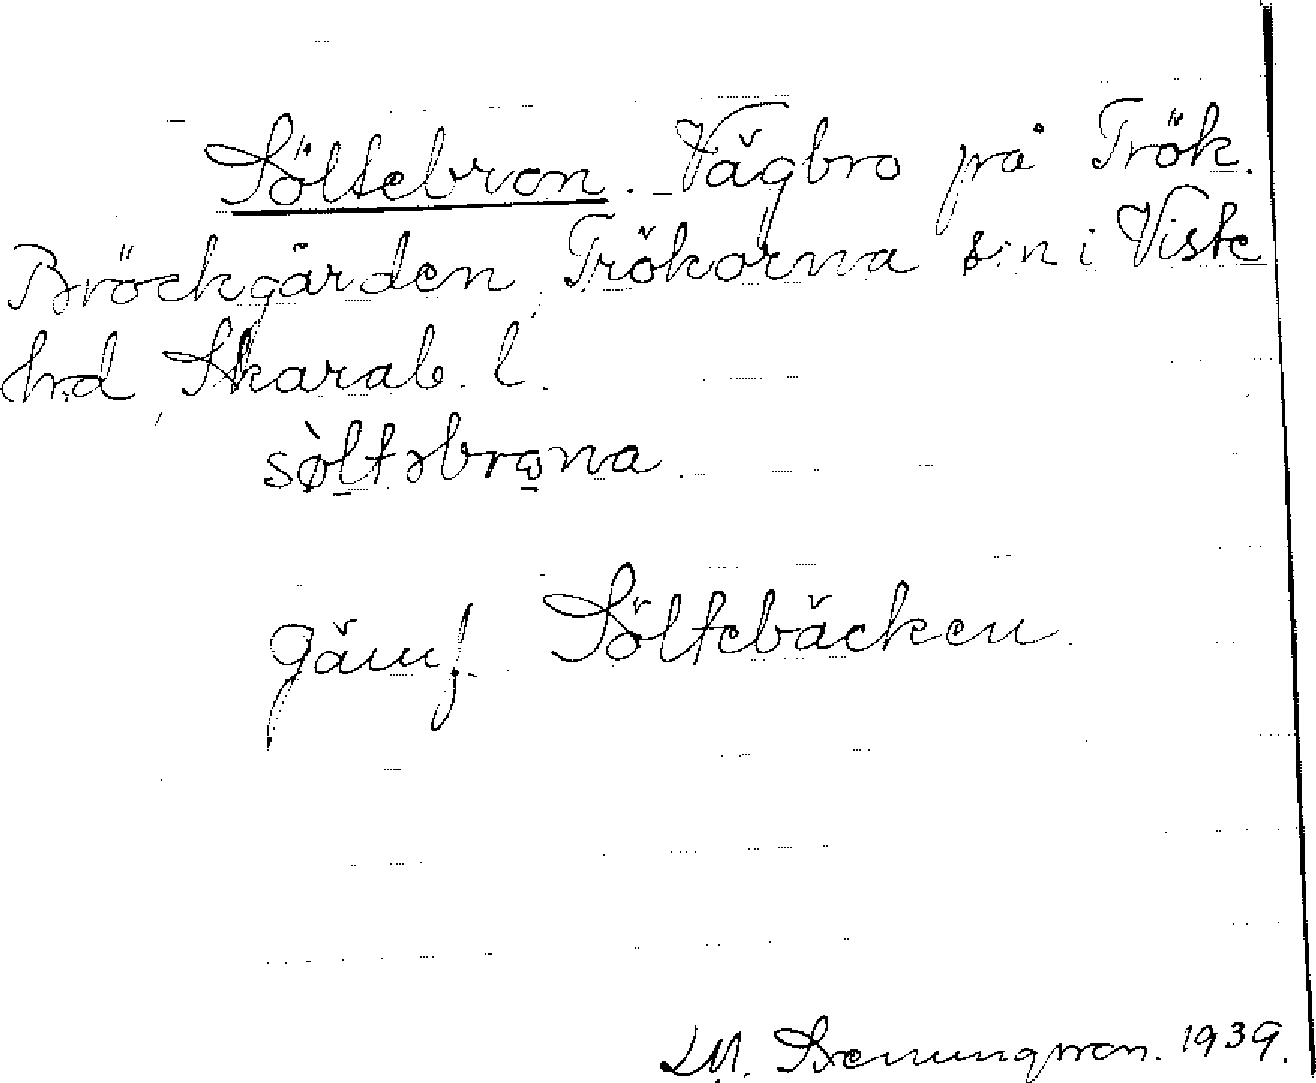 Söltebron. Vägbro på Trök.
Bröckgården, Trökörna s:n i Viste
hrd, Skarab. l.
sø̀ltəbrωna.
Jämf. Söltebäcken.
1939.